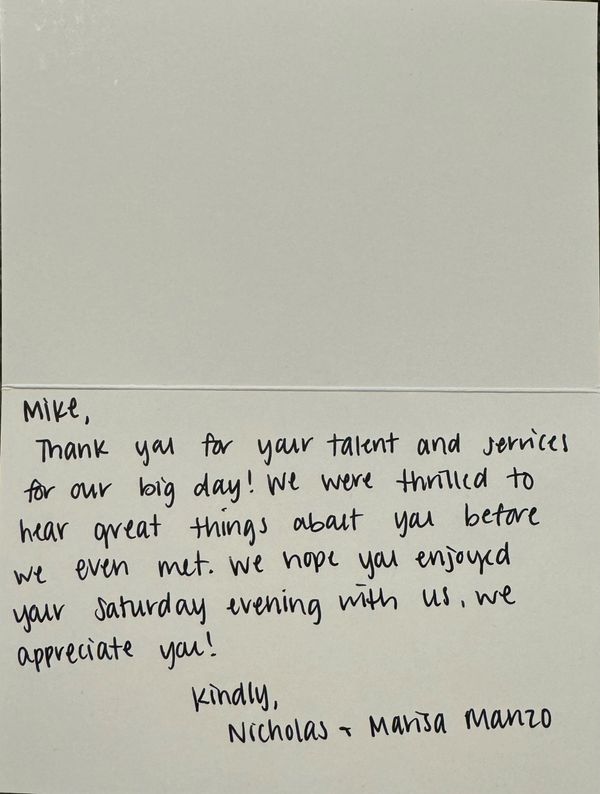 Mike,
Thank you for your talent and services
for our big day! We were thrilled to
hear great things about you before
we even met. We hope you enjoyed
your Saturday evening with us. We
appreciate you!
Kindly,
Nicholas + Marisa Manzo